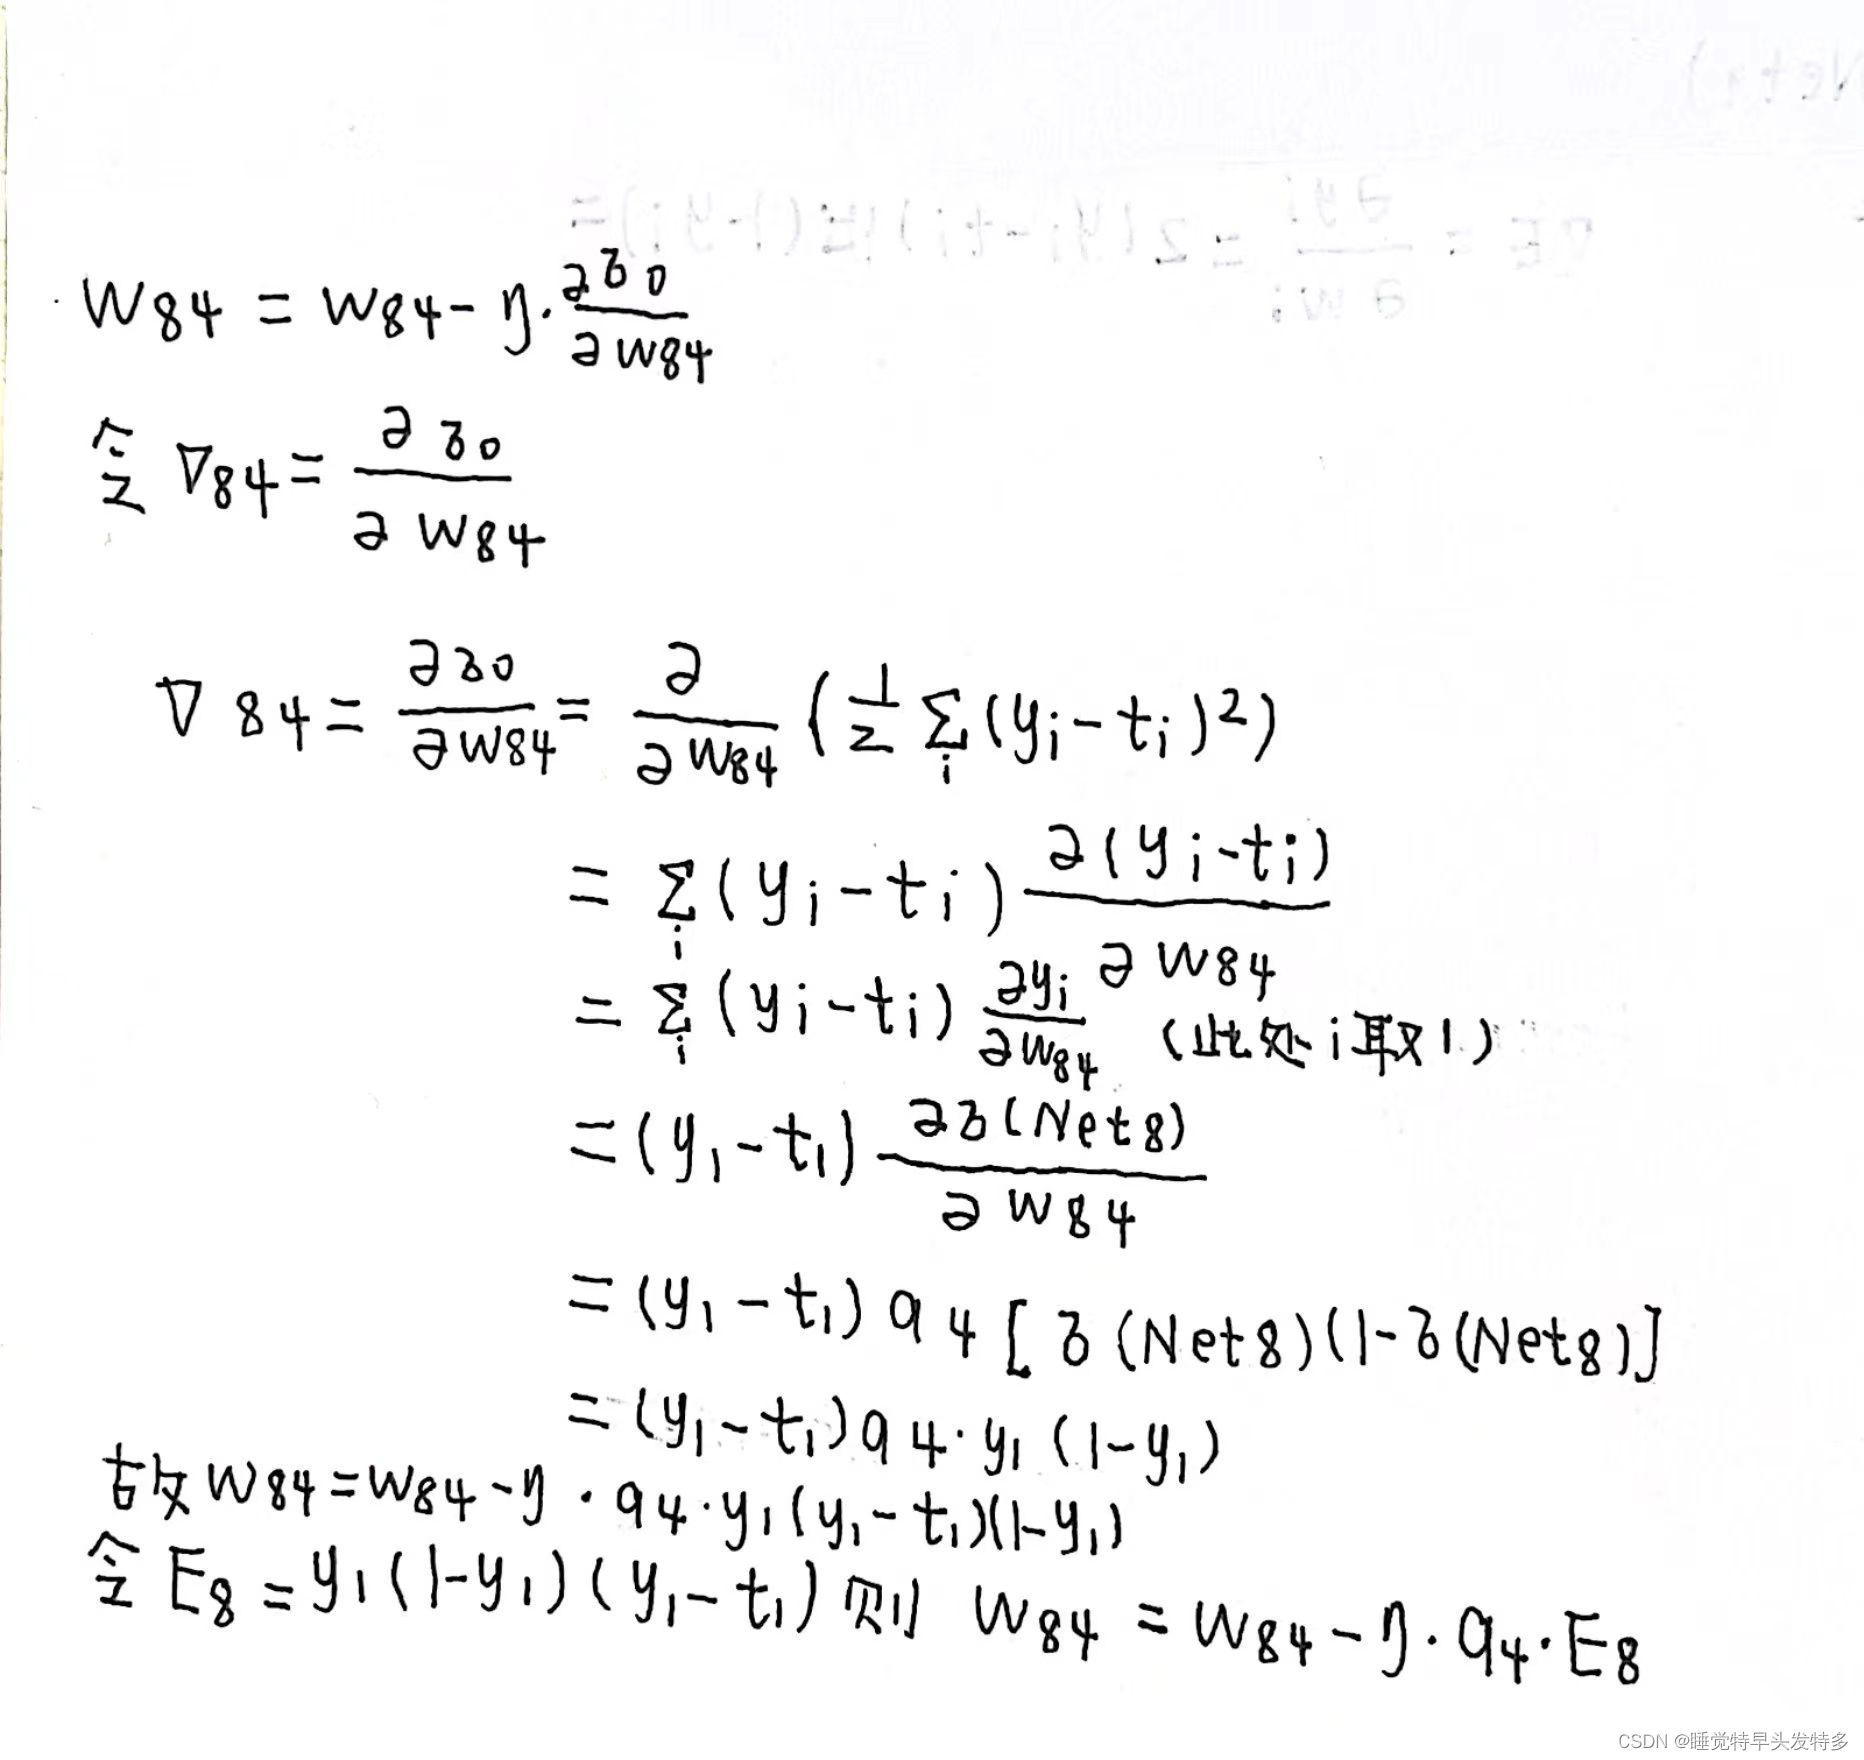 W84 = W84 - η · ∂δ0 / ∂W84
令 ∇84 = ∂δ0 / ∂W84
∇84 = ∂δ0 / ∂W84 = ∂ / ∂W84 (1/2 Σi (yi - ti)²)
= Σi (yi - ti) ∂(yi - ti) / ∂W84
= Σi (yi - ti) ∂yi / ∂W84 (此处i取1)
= (y1 - t1) ∂δ(Net8) / ∂W84
= (y1 - t1) a4 [δ(Net8)(1 - δ(Net8)]
= (y1 - t1) a4 · y1 (1 - y1)
故 W84 = W84 - η · a4 · y1 (y1 - t1)(1 - y1)
令 E8 = y1 (1 - y1) (y1 - t1) 则 W84 = W84 - η · a4 · E8
CSDN @睡觉特早头发特多